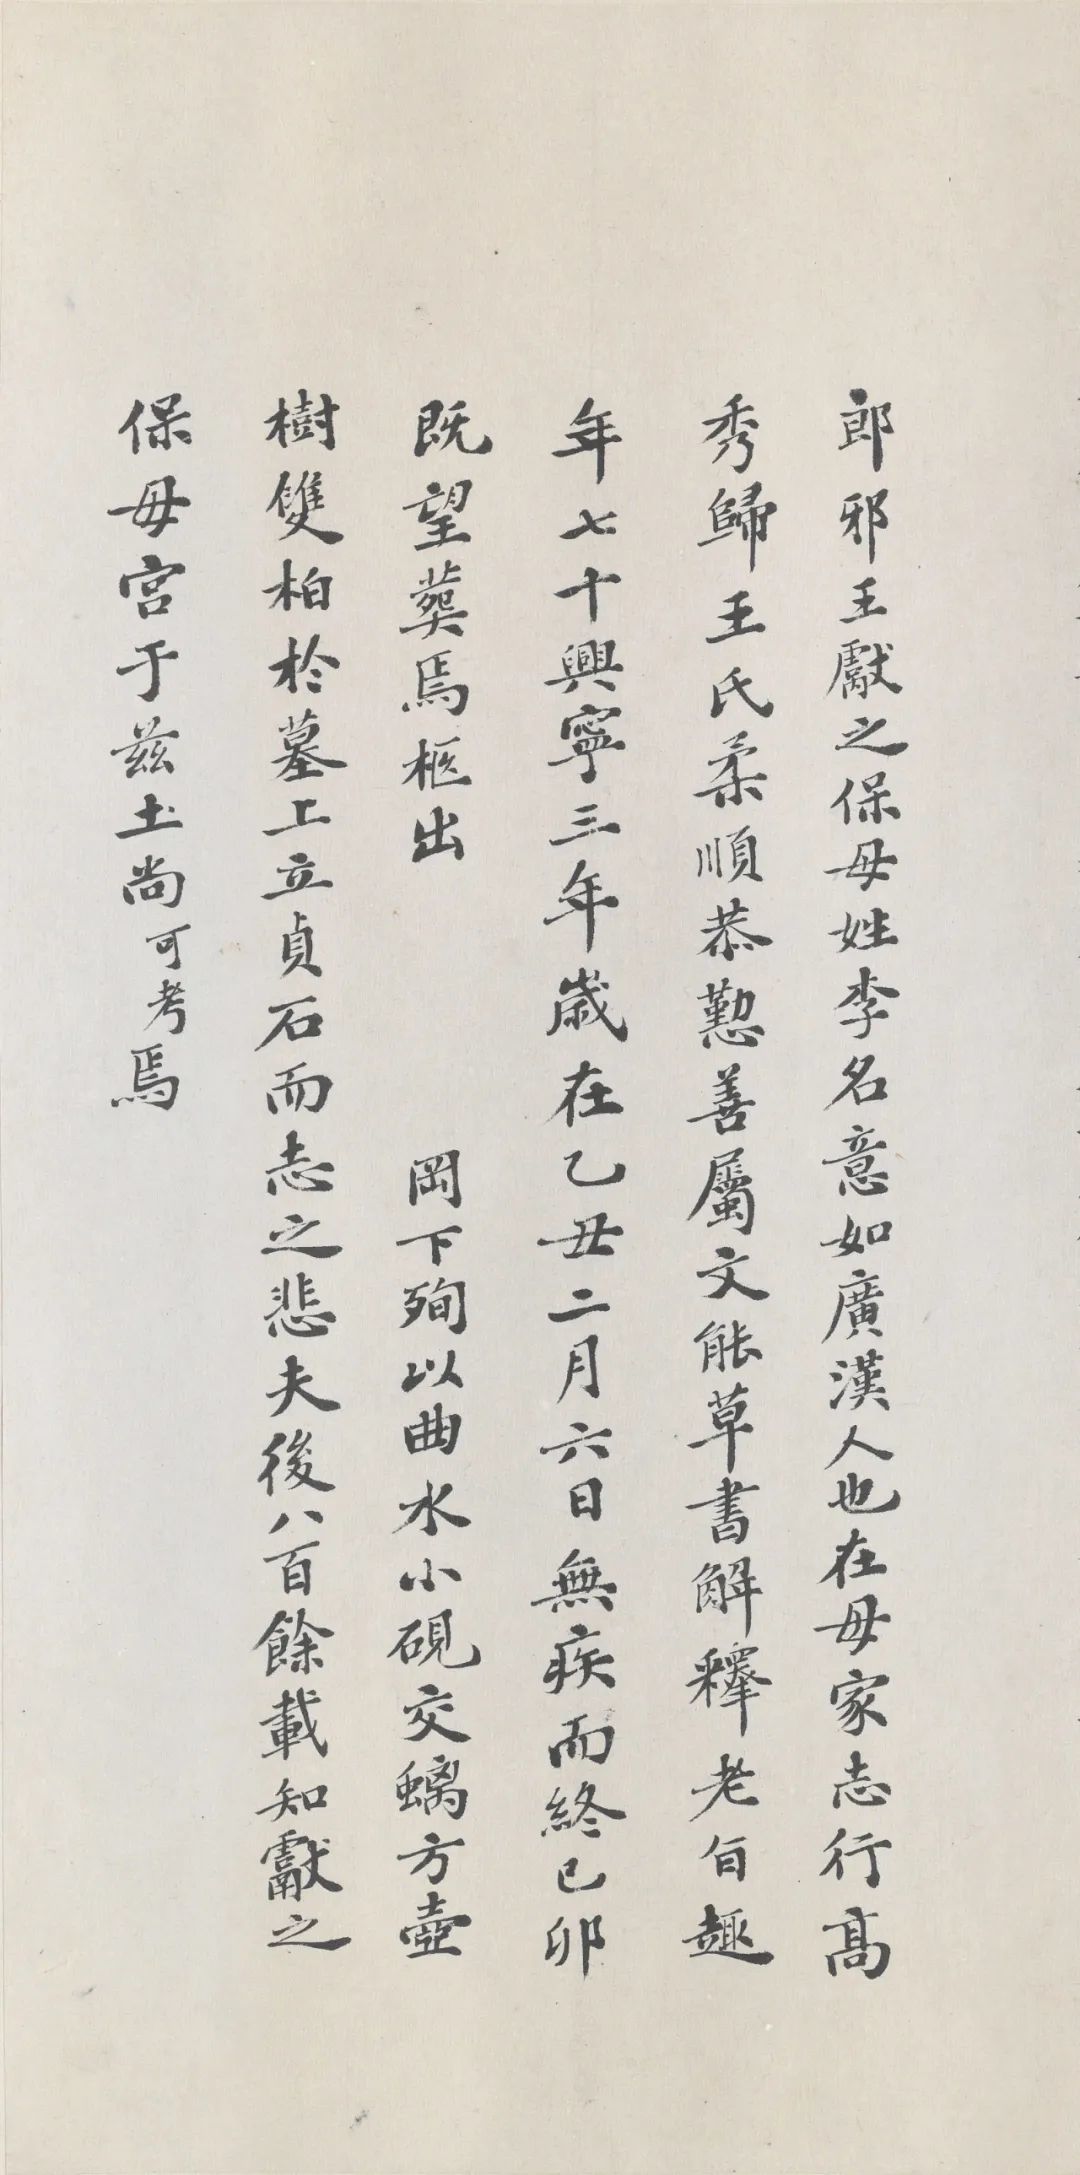 郎邪王獻之保母姓李名意如廣漢人也在母家志行高
秀歸王氏柔順恭懃善屬文能草書解釋老旨趣
年七十興寧三年歲在乙丑二月六日無疾而終已卯
既望葬焉柩出 岡下殉以曲水小硯交螭方壺
樹雙柏於墓上立貞石而志之悲夫後八百餘載知獻之
保母宮于茲土尚可考焉